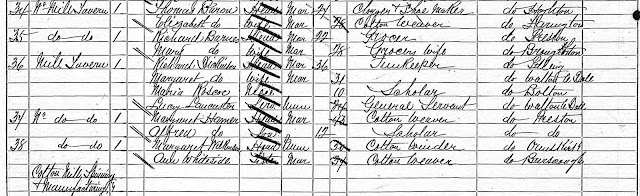 34 No Mill Tavern 1 Thomas Head Mar 24 Clogger & Shoe Maker do Hoghton
Elizabeth do Wife Mar Cotton Weaver do Farington
35 do do 1 Richard Head Mar 22 Grocer do Preston
Mary do Wife Mar Grocers Wife do Broughton
36 Mill Tavern 1 Richard Head Mar 36 do
Margaret do Wife Mar 31 do Walton le Dale
Maria 10 Scholar do Bolton
Lucy Lancaster General Servant do Walton le Dale
37 No do 1 Margaret Head Cotton Weaver do Preston
Alfred do Son 12 Scholar do do
38 do do 1 Margaret Head Cotton Winder do Ormskirk
Ann Whiteside Mar Cotton Weaver do Burscough
Cotton Mill Spinning
& Manufacturing